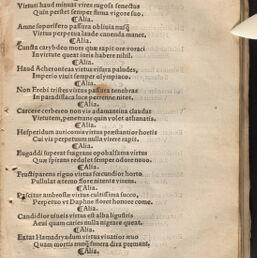 Virtuti haud minuat vires rugosa senectus
Quin perstet semper firma vigore suo.
¶Alia.
Amne soporifero passura oblivia nusq̃
Virtus perpetua laude canenda manet.
¶Alia.
Cuncta carybdeo mors quæ rapit ore voraci
Invirtute queat iuris habere nihil.
¶Alia.
Haud Acheronteas virtus visura paludes,
Imperio vivit semper olympiaco.
¶Alia.
Non Erebi tristes virtus passura tenebras
In paradisiaca luce perenne nitet.
¶Alia.
Carcere cerbereo non vis adamantina claudat
Virtutem, penetrans quin volet athanatis.
¶Alia.
Hesperidum auricomis virtus præstantior hortis
Cui vis perpetuum nulla virere rapis.
¶Alia.
Engaddi superat fragrans opobalsama virtus
Quæ spirans redolet semper odore novo.
¶Alia.
Frustiparens riguo virtus fœcundior horto
Pullulat æterno flore nitente virens.
¶Alia.
Pascitur ambrosiæ virtus cultissima succo,
Perpetuo vt Daphne floret honore comæ.
¶Alia.
Candidior niueis virtus est alba ligustris
Aeui quam caries nulla nigrare queat.
¶Alia.
Extat Hamadryadum virtus viuatior æuo
Quam mortis nunq̃ funera dira premant,
¶Alia.